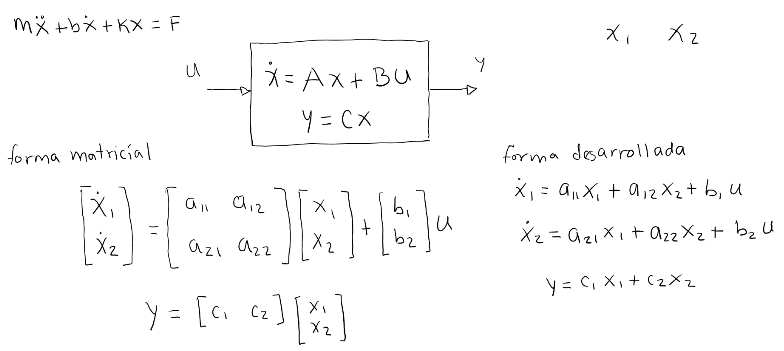 mẍ + bẋ + Kx = F
x₁ x₂
u
ẋ = Ax + Bu
y = Cx
y
forma matricial
[ẋ₁ ẋ₂] = [a₁₁ a₁₂ a₂₁ a₂₂] [x₁ x₂] + [b₁ b₂] u
y = [c₁ c₂] [x₁ x₂]
forma desarrollada
ẋ₁ = a₁₁x₁ + a₁₂x₂ + b₁u
ẋ₂ = a₂₁x₁ + a₂₂x₂ + b₂u
y = c₁x₁ + c₂x₂